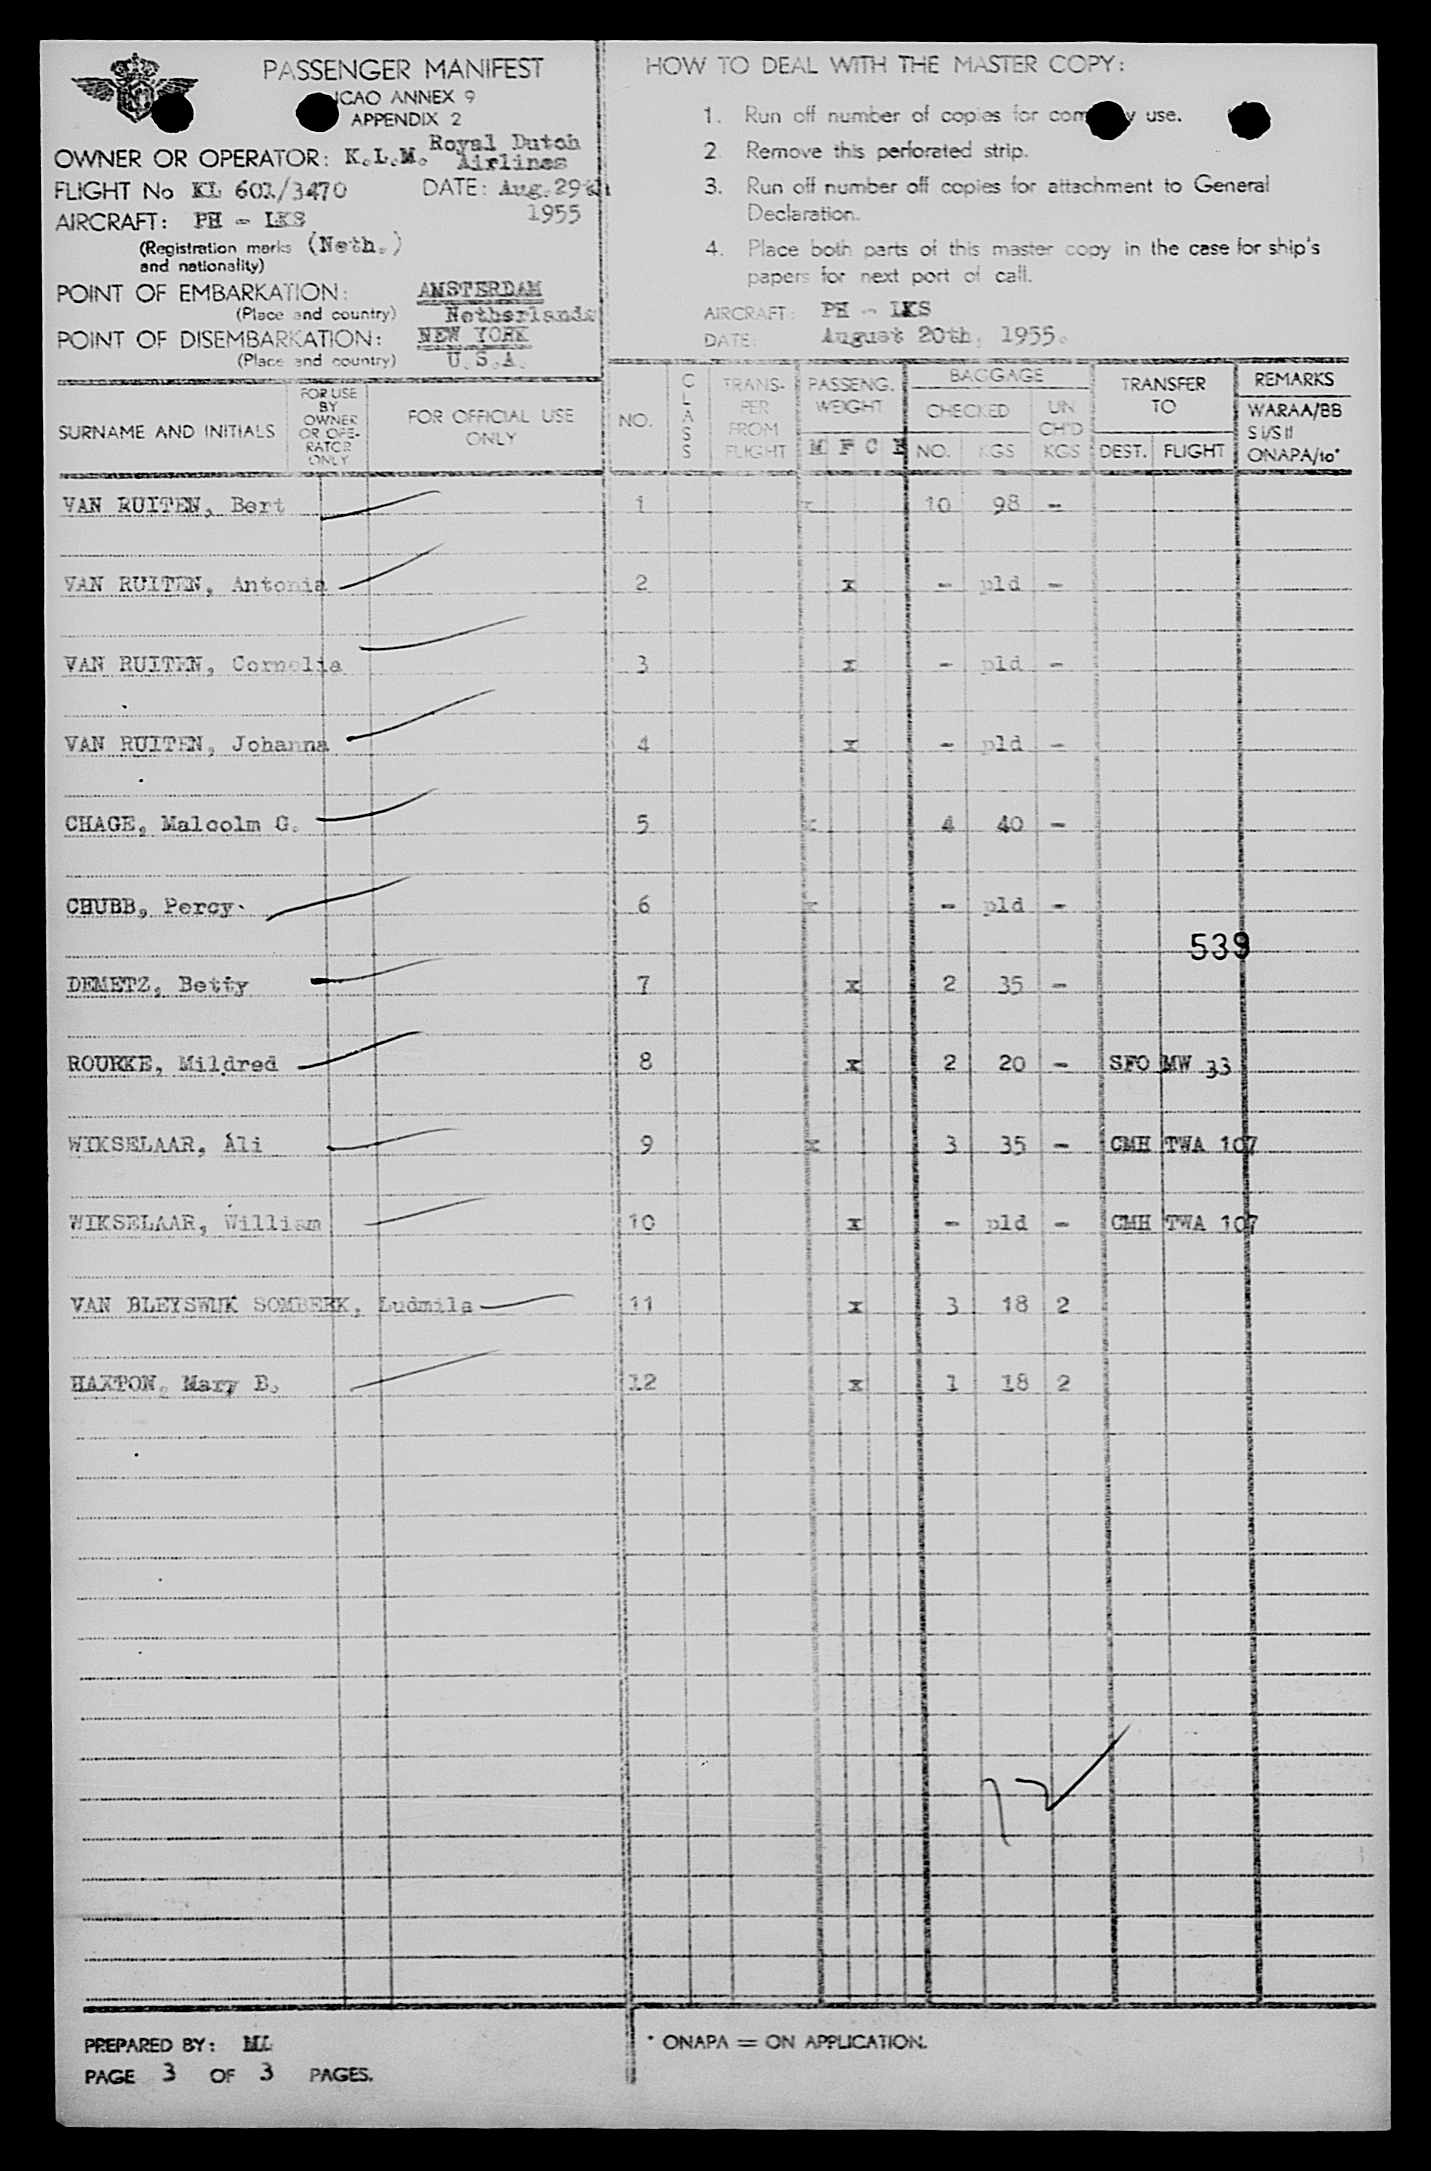 PASSENGER MANIFEST
ICAO ANNEX 9
APPENDIX 2
OWNER OR OPERATOR: K.L.M. Royal Dutch Airlines
FLIGHT No KL 601/3470 DATE: Aug. 29th 1955
AIRCRAFT: PH - LKS
(Registration marks and nationality) (Neth.)
POINT OF EMBARKATION: AMSTERDAM
(Place and country) Netherlands
POINT OF DISEMBARKATION: NEW YORK
(Place and country) U.S.A.
HOW TO DEAL WITH THE MASTER COPY:
1. Run off number of copies for company use.
2. Remove this perforated strip.
3. Run off number off copies for attachment to General
Declaration.
4. Place both parts of this master copy in the case for ship's
papers for next port of call.
AIRCRAFT: PH - LKS
DATE: August 20th, 1955.
SURNAME AND INITIALS FOR USE BY OWNER OR OPERATOR ONLY FOR OFFICIAL USE ONLY NO. CLASS TRANSFER FROM FLIGHT PASSENG. WEIGHT M F C BAGGAGE CHECKED NO. KGS UN CH'D KGS TRANSFER TO DEST. FLIGHT REMARKS WARAA/BB SI/SII ONAPA/10*
VAN RUITEN, Bert 1 x 10 98 -
VAN RUITEN, Antonia 2 x - pld -
VAN RUITEN, Cornelia 3 x - pld -
VAN RUITEN, Johanna 4 x - pld -
CHAGE, Malcolm G. 5 x 4 40 -
CHUBB, Percy 6 x - pld -
539
DEMETZ, Betty 7 x 2 35 -
ROURKE, Mildred 8 x 2 20 - SFO MW 33
WIKSELAAR, Ali 9 x 3 35 - CMH TWA 107
WIKSELAAR, William 10 x - pld - CMH TWA 107
VAN BLEYSWIJK SOMBEEK, Ludmila 11 x 3 18 2
HAXTON, Mary B. 12 x 1 18 2
12
PREPARED BY: ML
PAGE 3 OF 3 PAGES.
* ONAPA = ON APPLICATION.